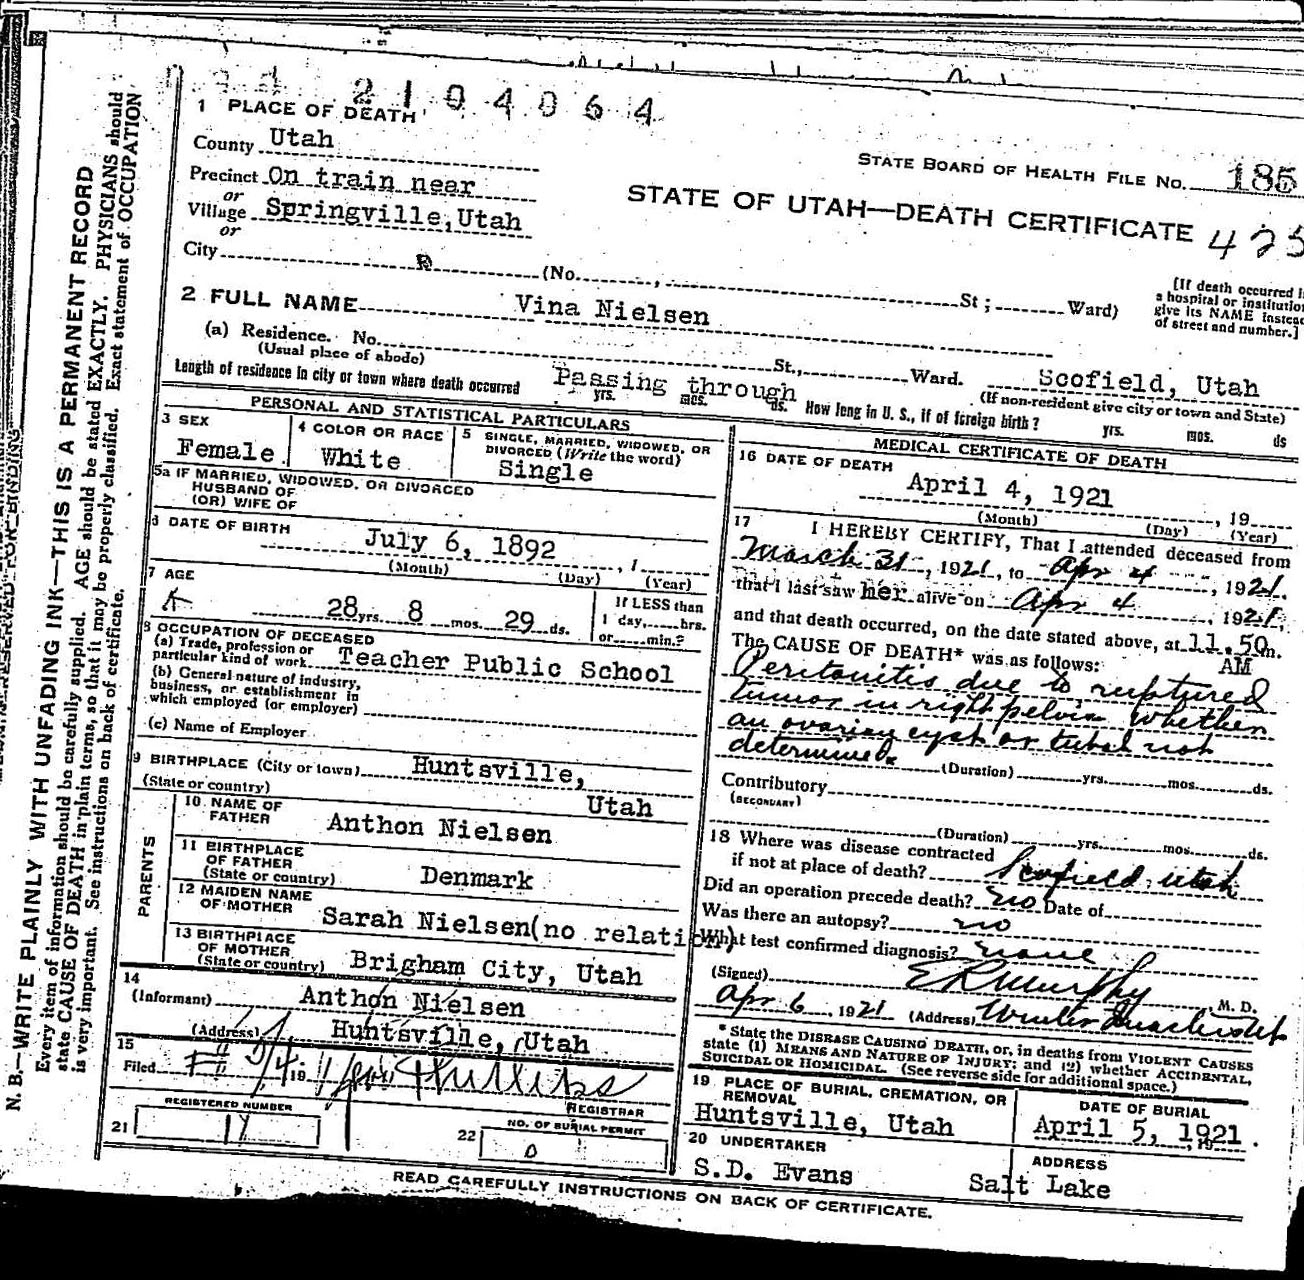 2104064
1 PLACE OF DEATH
County Utah
STATE BOARD OF HEALTH FILE NO. 185
Precinct On train near
or
STATE OF UTAH—DEATH CERTIFICATE 425
Village Springville, Utah
or
City (No. , St ; Ward)
[If death occurred in
a hospital or institution
give its NAME instead
of street and number.]
2 FULL NAME Vina Nielsen
(a) Residence. No. St., Ward. Scofield, Utah
(Usual place of abode) (If non-resident give city or town and State)
Length of residence in city or town where death occurred Passing through yrs. mos. ds. How long in U. S., if of foreign birth? yrs. mos. ds
PERSONAL AND STATISTICAL PARTICULARS
3 SEX
Female
4 COLOR OR RACE
White
5 SINGLE, MARRIED, WIDOWED, OR
DIVORCED (Write the word)
Single
5a IF MARRIED, WIDOWED, OR DIVORCED
HUSBAND OF
(OR) WIFE OF
6 DATE OF BIRTH
July 6, 1892 , 1
(Month) (Day) (Year)
7 AGE
28 yrs. 8 mos. 29 ds.
If LESS than
1 day, hrs.
or min.?
8 OCCUPATION OF DECEASED
(a) Trade, profession or
particular kind of work Teacher Public School
(b) General nature of industry,
business, or establishment in
which employed (or employer)
(c) Name of Employer
9 BIRTHPLACE (City or town) Huntsville,
(State or country) Utah
PARENTS
10 NAME OF
FATHER Anthon Nielsen
11 BIRTHPLACE
OF FATHER
(State or country) Denmark
12 MAIDEN NAME
OF MOTHER Sarah Nielsen(no relation)
13 BIRTHPLACE
OF MOTHER
(State or country) Brigham City, Utah
14
(Informant) Anthon Nielsen
(Address) Huntsville, Utah
15
Filed 19 Phillips
REGISTRAR
REGISTERED NUMBER
21
NO. OF BURIAL PERMIT
22 0
MEDICAL CERTIFICATE OF DEATH
16 DATE OF DEATH
April 4, 1921 , 19
(Month) (Day) (Year)
17 I HEREBY CERTIFY, That I attended deceased from
March 31 , 1921, to Apr 4 , 1921.
that I last saw her alive on Apr 4 , 1921,
and that death occurred, on the date stated above, at 11.50 m.
AM
The CAUSE OF DEATH* was as follows:
Peritonitis due to ruptured
tumor in right pelvis whether
an ovarian cyst or tubal not
determined.
(Duration) yrs. mos. ds.
Contributory
(SECONDARY)
(Duration) yrs. mos. ds.
18 Where was disease contracted
if not at place of death? Scofield, Utah
Did an operation precede death? no Date of
Was there an autopsy? no
What test confirmed diagnosis? none
(Signed) E R Murphy M. D.
Apr 6 , 1921 (Address) Winter Quarters Ut
* State the DISEASE CAUSING DEATH, or, in deaths from VIOLENT CAUSES
state (1) MEANS AND NATURE OF INJURY; and (2) whether ACCIDENTAL,
SUICIDAL OR HOMICIDAL. (See reverse side for additional space.)
19 PLACE OF BURIAL, CREMATION, OR
REMOVAL
Huntsville, Utah
DATE OF BURIAL
April 5, 1921. , 19
20 UNDERTAKER
S.D. Evans
ADDRESS
Salt Lake
READ CAREFULLY INSTRUCTIONS ON BACK OF CERTIFICATE.
N. B.—WRITE PLAINLY WITH UNFADING INK—THIS IS A PERMANENT RECORD
Every item of information should be carefully supplied. AGE should be stated EXACTLY. PHYSICIANS should
state CAUSE OF DEATH in plain terms, so that it may be properly classified. Exact statement of OCCUPATION
is very important. See instructions on back of certificate.